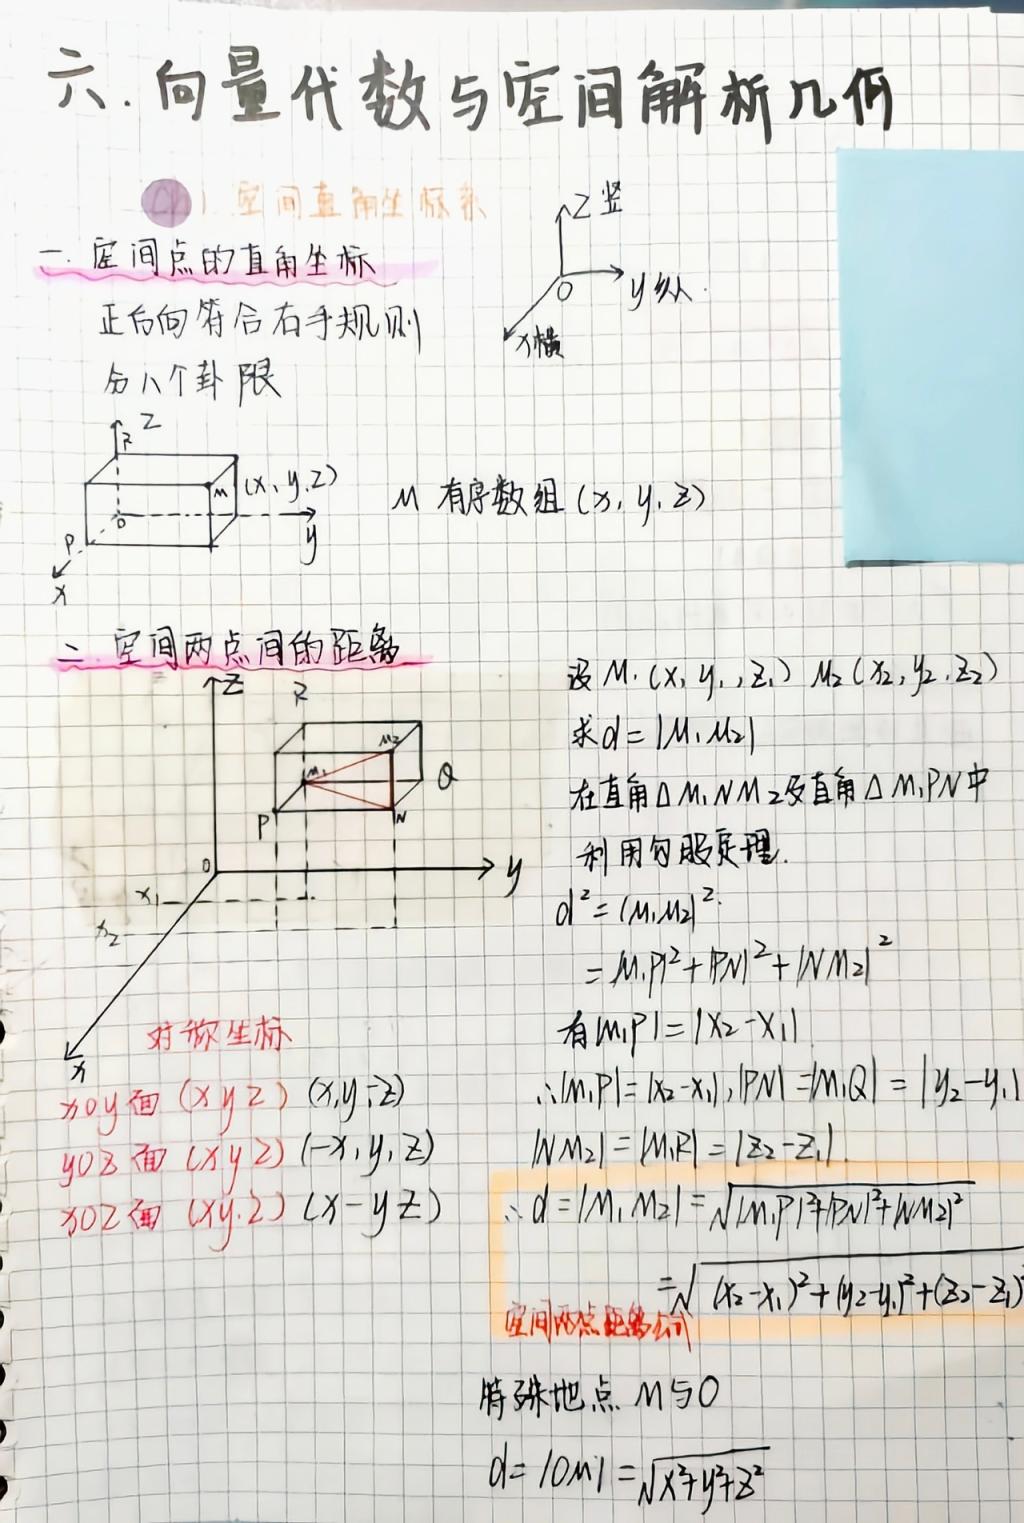 六.向量代数与空间解析几何
Ch1 空间直角坐标系
一.空间点的直角坐标
正方向符合右手规则
分八个卦限
Z竖
O
y纵
x横
Z
R
M (x, y, z)
O
P
y
x
M 有序数组 (x, y, z)
二.空间两点间的距离
Z
R
M2
M1
Q
P
N
O
y
x1
x2
x
设M1(x, y1, z1) M2(x2, y2, z2)
求d=|M1M2|
在直角△M1NM2及直角△M1PN中
利用勾股定理.
d²=(M1M2|²
=M1P|²+|PN|²+|NM2|²
有|M1P|=|x2-x1|
∴|M1P|=|x2-x1|, |PN|=|M1Q|=|y2-y1|
|NM2|=|M1R|=|z2-z1|
∴d=|M1M2|=√|M1P|²+|PN|²+|NM2|²
=√(x2-x1)²+(y2-y1)²+(z2-z1)²
空间两点距离公式
对称坐标
xoy面 (x y z) (x,y,-z)
yoz面 (x y z) (-x, y, z)
xoz面 (xy.z) (x-yz)
特殊地点 M与O
d=|OM|=√x²+y²+z²